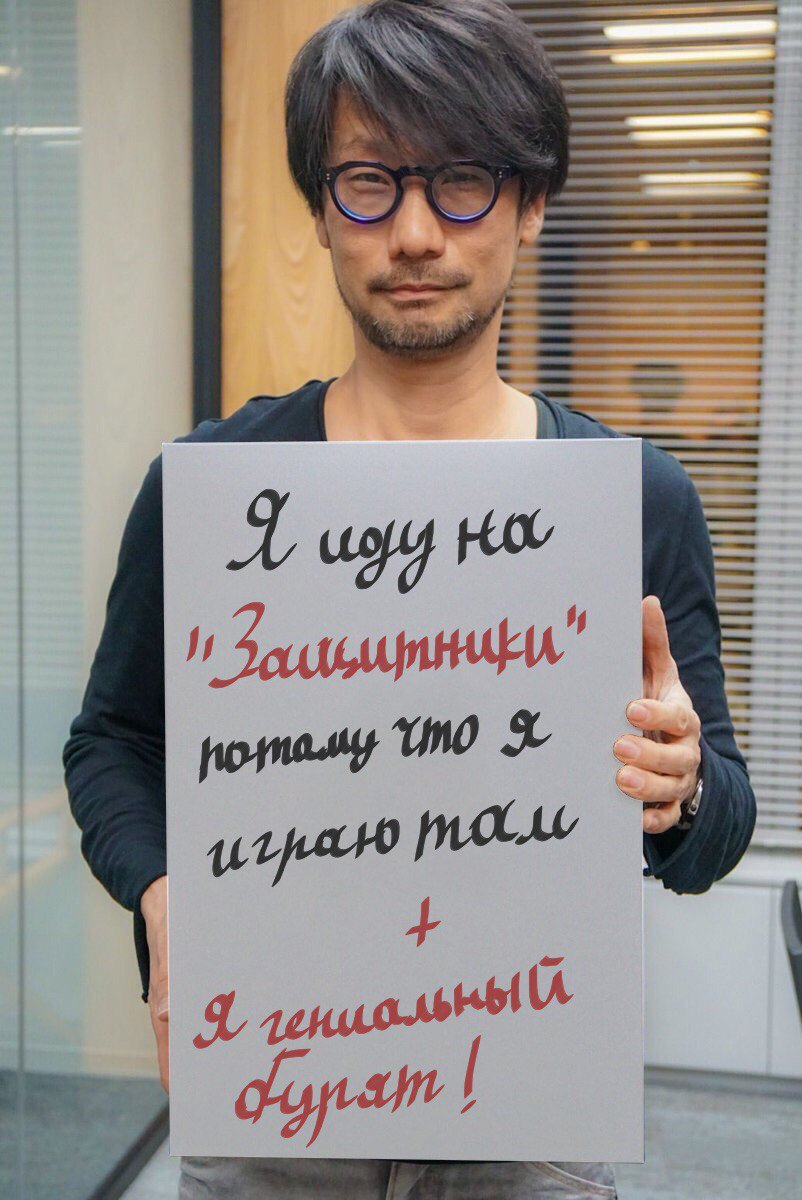 Я иду на
"Защитники"
потому что я
играю там
+
Я гениальный
бурят!